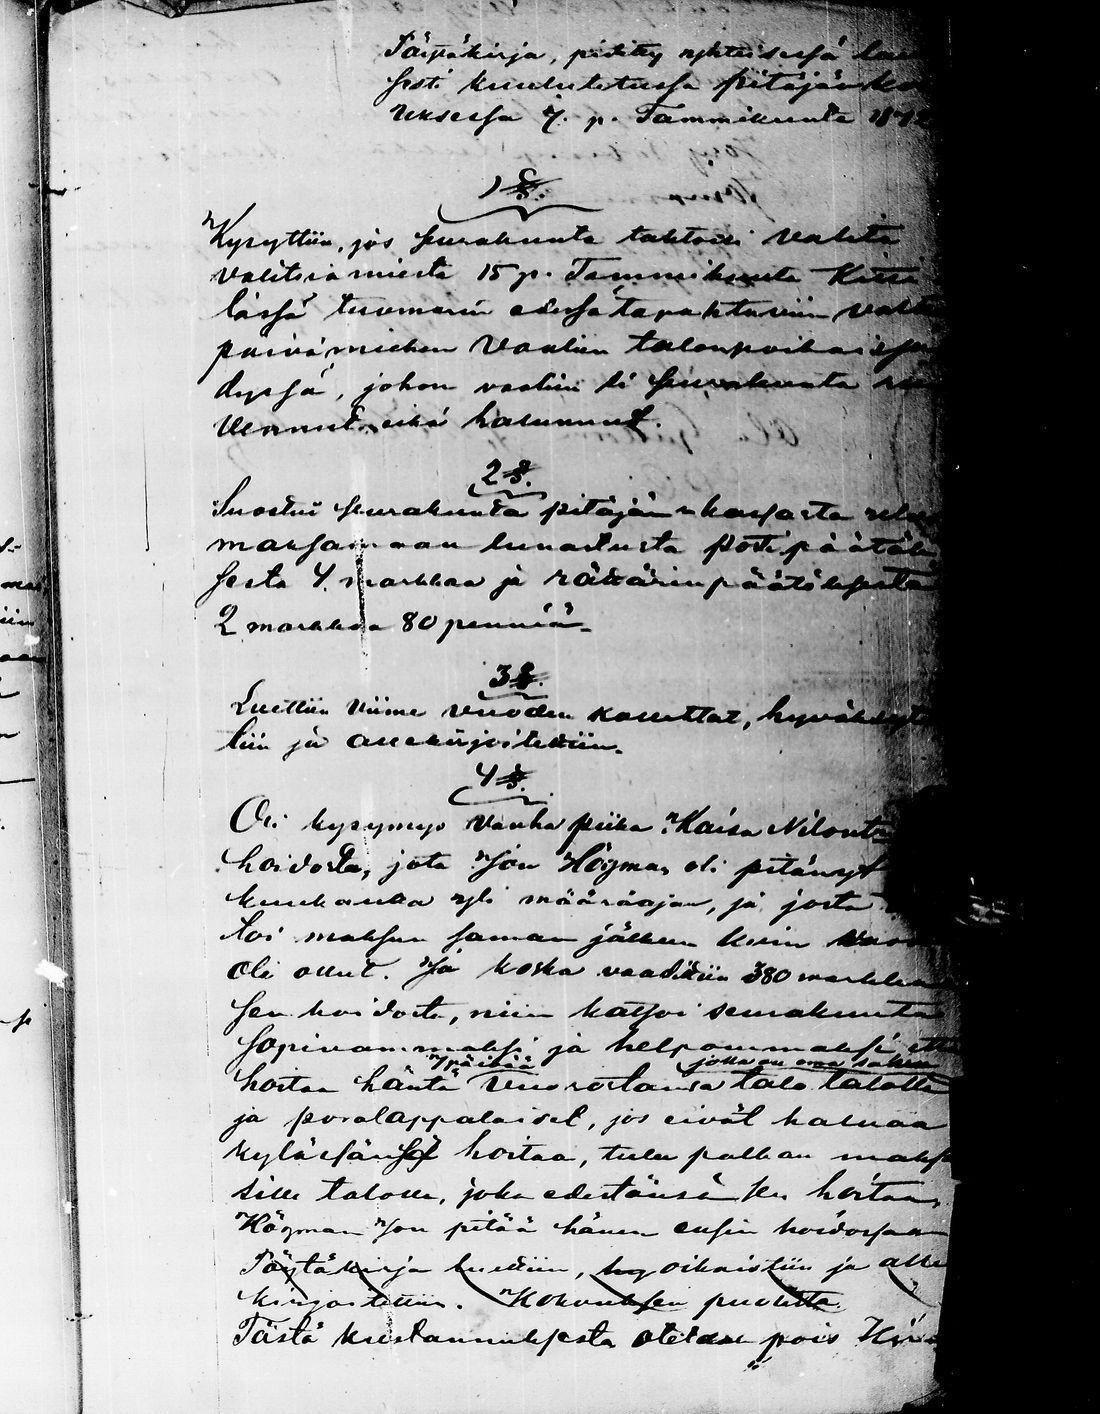 Pöytäkirja, pidetty yhteisessä
sesti kuulutetussa pitäjän
uksessa 7. p. Tammikuuta 1872
1 §.
Kysyttiin, jos seurakunta tahtoisi valita
valitsia miestä 15 p. Tammikuuta Kitti
lässä tuomarin edessä tapahtuviin valtio
päivämiehen vaaliin talonpoikaissää
dyssä, johon vaaliin ei seurakunta
vennut eikä halunnut.
2 §.
Suostui seurakunta pitäjän kassasta
maksamaan lunastusta posti päätök
sestä 4 markkaa ja räkärin päätöksestä
2 markkaa 80 penniä.
3 §.
Luettiin viime vuoden kassattat, hyväksyt
tiin ja allekirjoitettiin.
4 §.
Oli kysymys vanha piika Kaisa Nilont
hoidosta, jota Jon Högman oli pitänyt
kuukautta yli määräajan, ja josta
toi maksun saman jälkeen kuin
oli ollut. Ja koska vaadittiin 380 markkaa
sen hoidosta, niin katsoi seurakunta
sopivammaksi ja helpommaksi että
7 päivää jolla on oma sakun
hoitaa häntä vuorostansa talo talolta
ja porolappalaiset, jos eivät halua
kylässänsä hoitaa, tulee palkan maksa
sille talolle, joka edestänsä sen hoitaa,
Högman Jon pitää hänen ensin hoidossaan
Pöytäkirja luettiin, hy oikaistiin ja alle
kirjoitettiin. Kokouksen puolesta
Tästä kustannuksesta otetaan pois